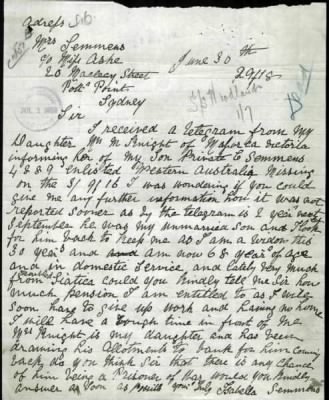 adress
Mrs Semmens
c/o Miss Ashe
20 Macleay Street
Potts Point
Sydney
June 30th
2918
JUL 1 1918
1/7
Sir
I received a telegram from my
Daughter Mrs M Knight of Maforea Victoria
informing her of my Son Private Semmens
4889 enlisted Western Australia Missing
on the 3/9/16 I was wondering if you could
give me any further information how it was not
reported sooner as by the telegram is 2 year next
September he was my unmarried Son and I look
for him back to keep me as I am a widow this
30 years and am now 68 year of age
and in domestic Service and lately very much
from Siatica could you kindly tell me Sir how
much pension I am entitled to as I will
soon have to give up work and having no home
I will have a rough time in front of me
Mrs Knight is my daughter and has been
drawing his allotments to bank for him coming
back do you think Sir that there is any chance
of him being a Prisoner of War would you kindly
answer as soon as your Isabella Semmens